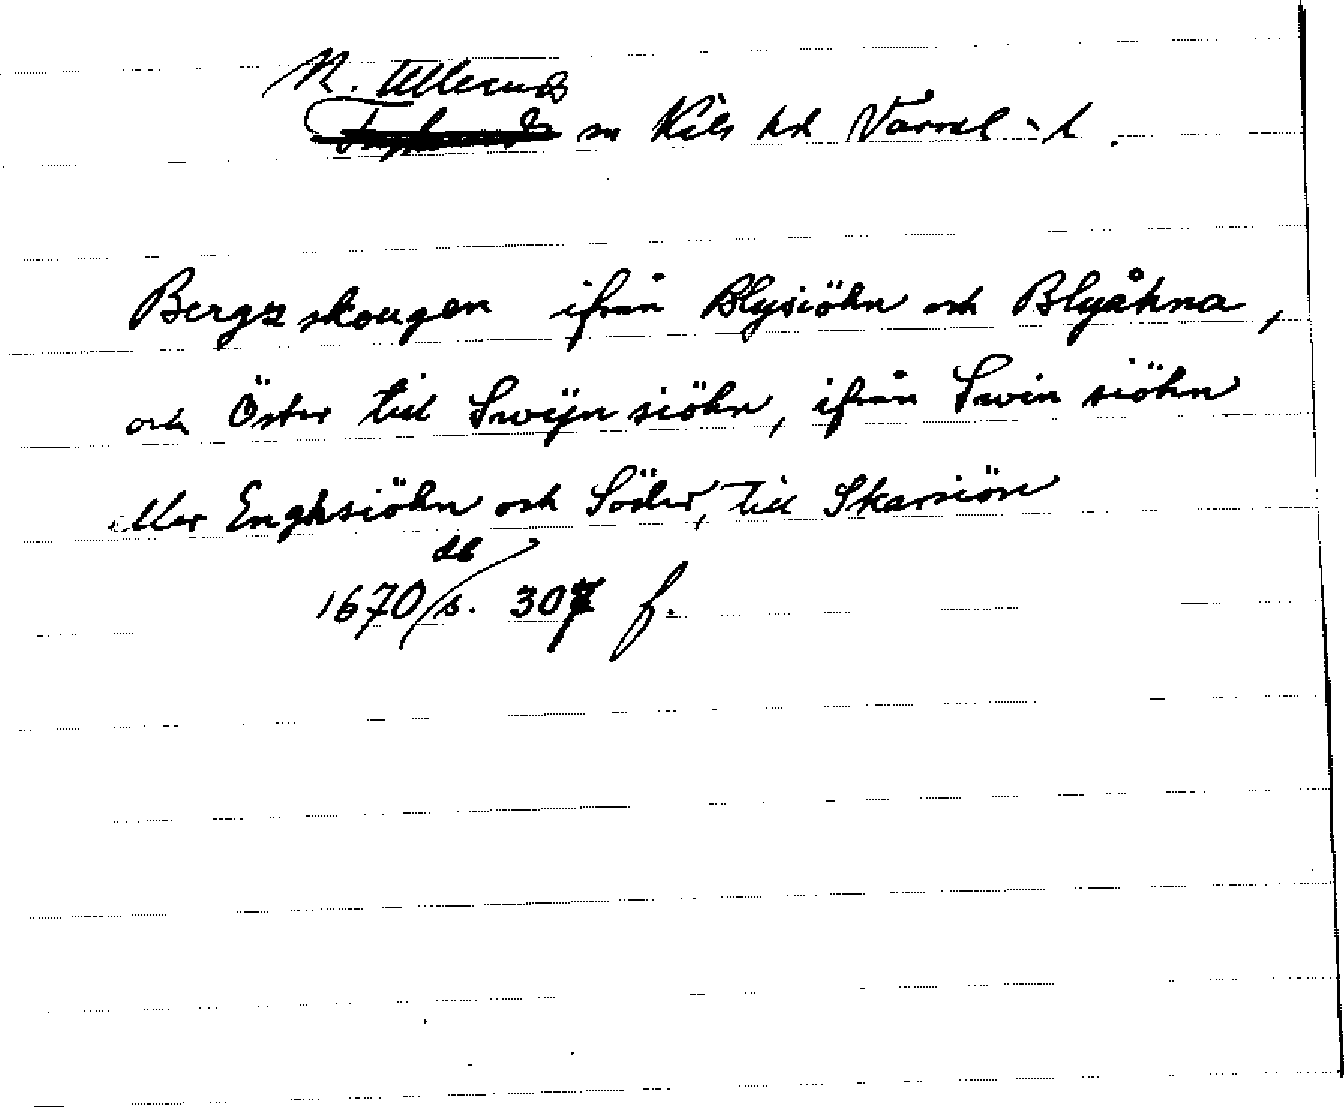 N. Ullerud
sn Kils hd Värml - l.
Bergzskougen ifrån Blysiöhn och Blyåhna,
och Öster till Swÿnsiöhn, ifrån Swin siöhn
eller Enghsiöhn och Söder, till Skarsiön
1670 db/s. 307 f.